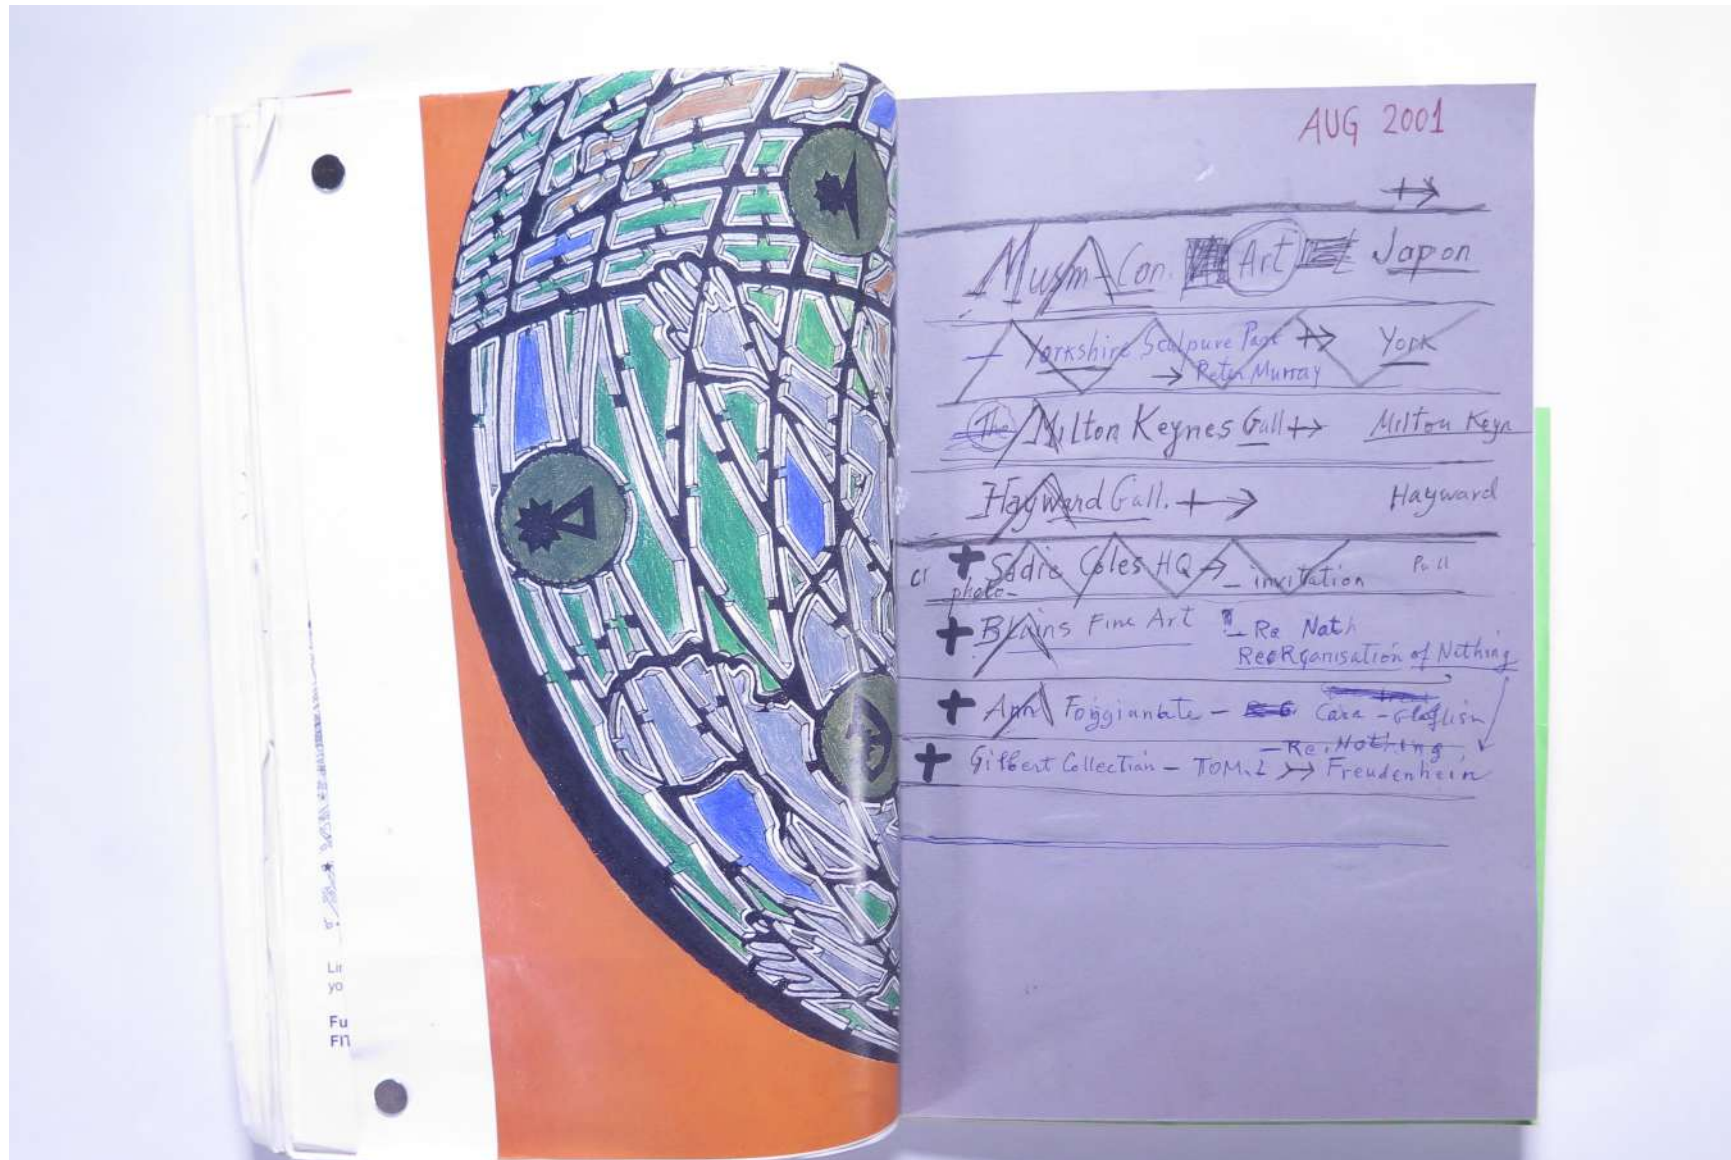 Lir
yo
Fu
FIT
AUG 2001
Musm - Con. Art Japon
Yorkshire Sculpure Park York
Peter Murray
The Milton Keynes Gall Milton Keyn
Hayward Gall. Hayward
Sadie Coles HQ invitation
photo-
Blains Fine Art - Re Nath
ReoRganisation of Nithing
Ann Cara -
- Re: Nothing
Gilbert Collection - TOM. L Freudenhein